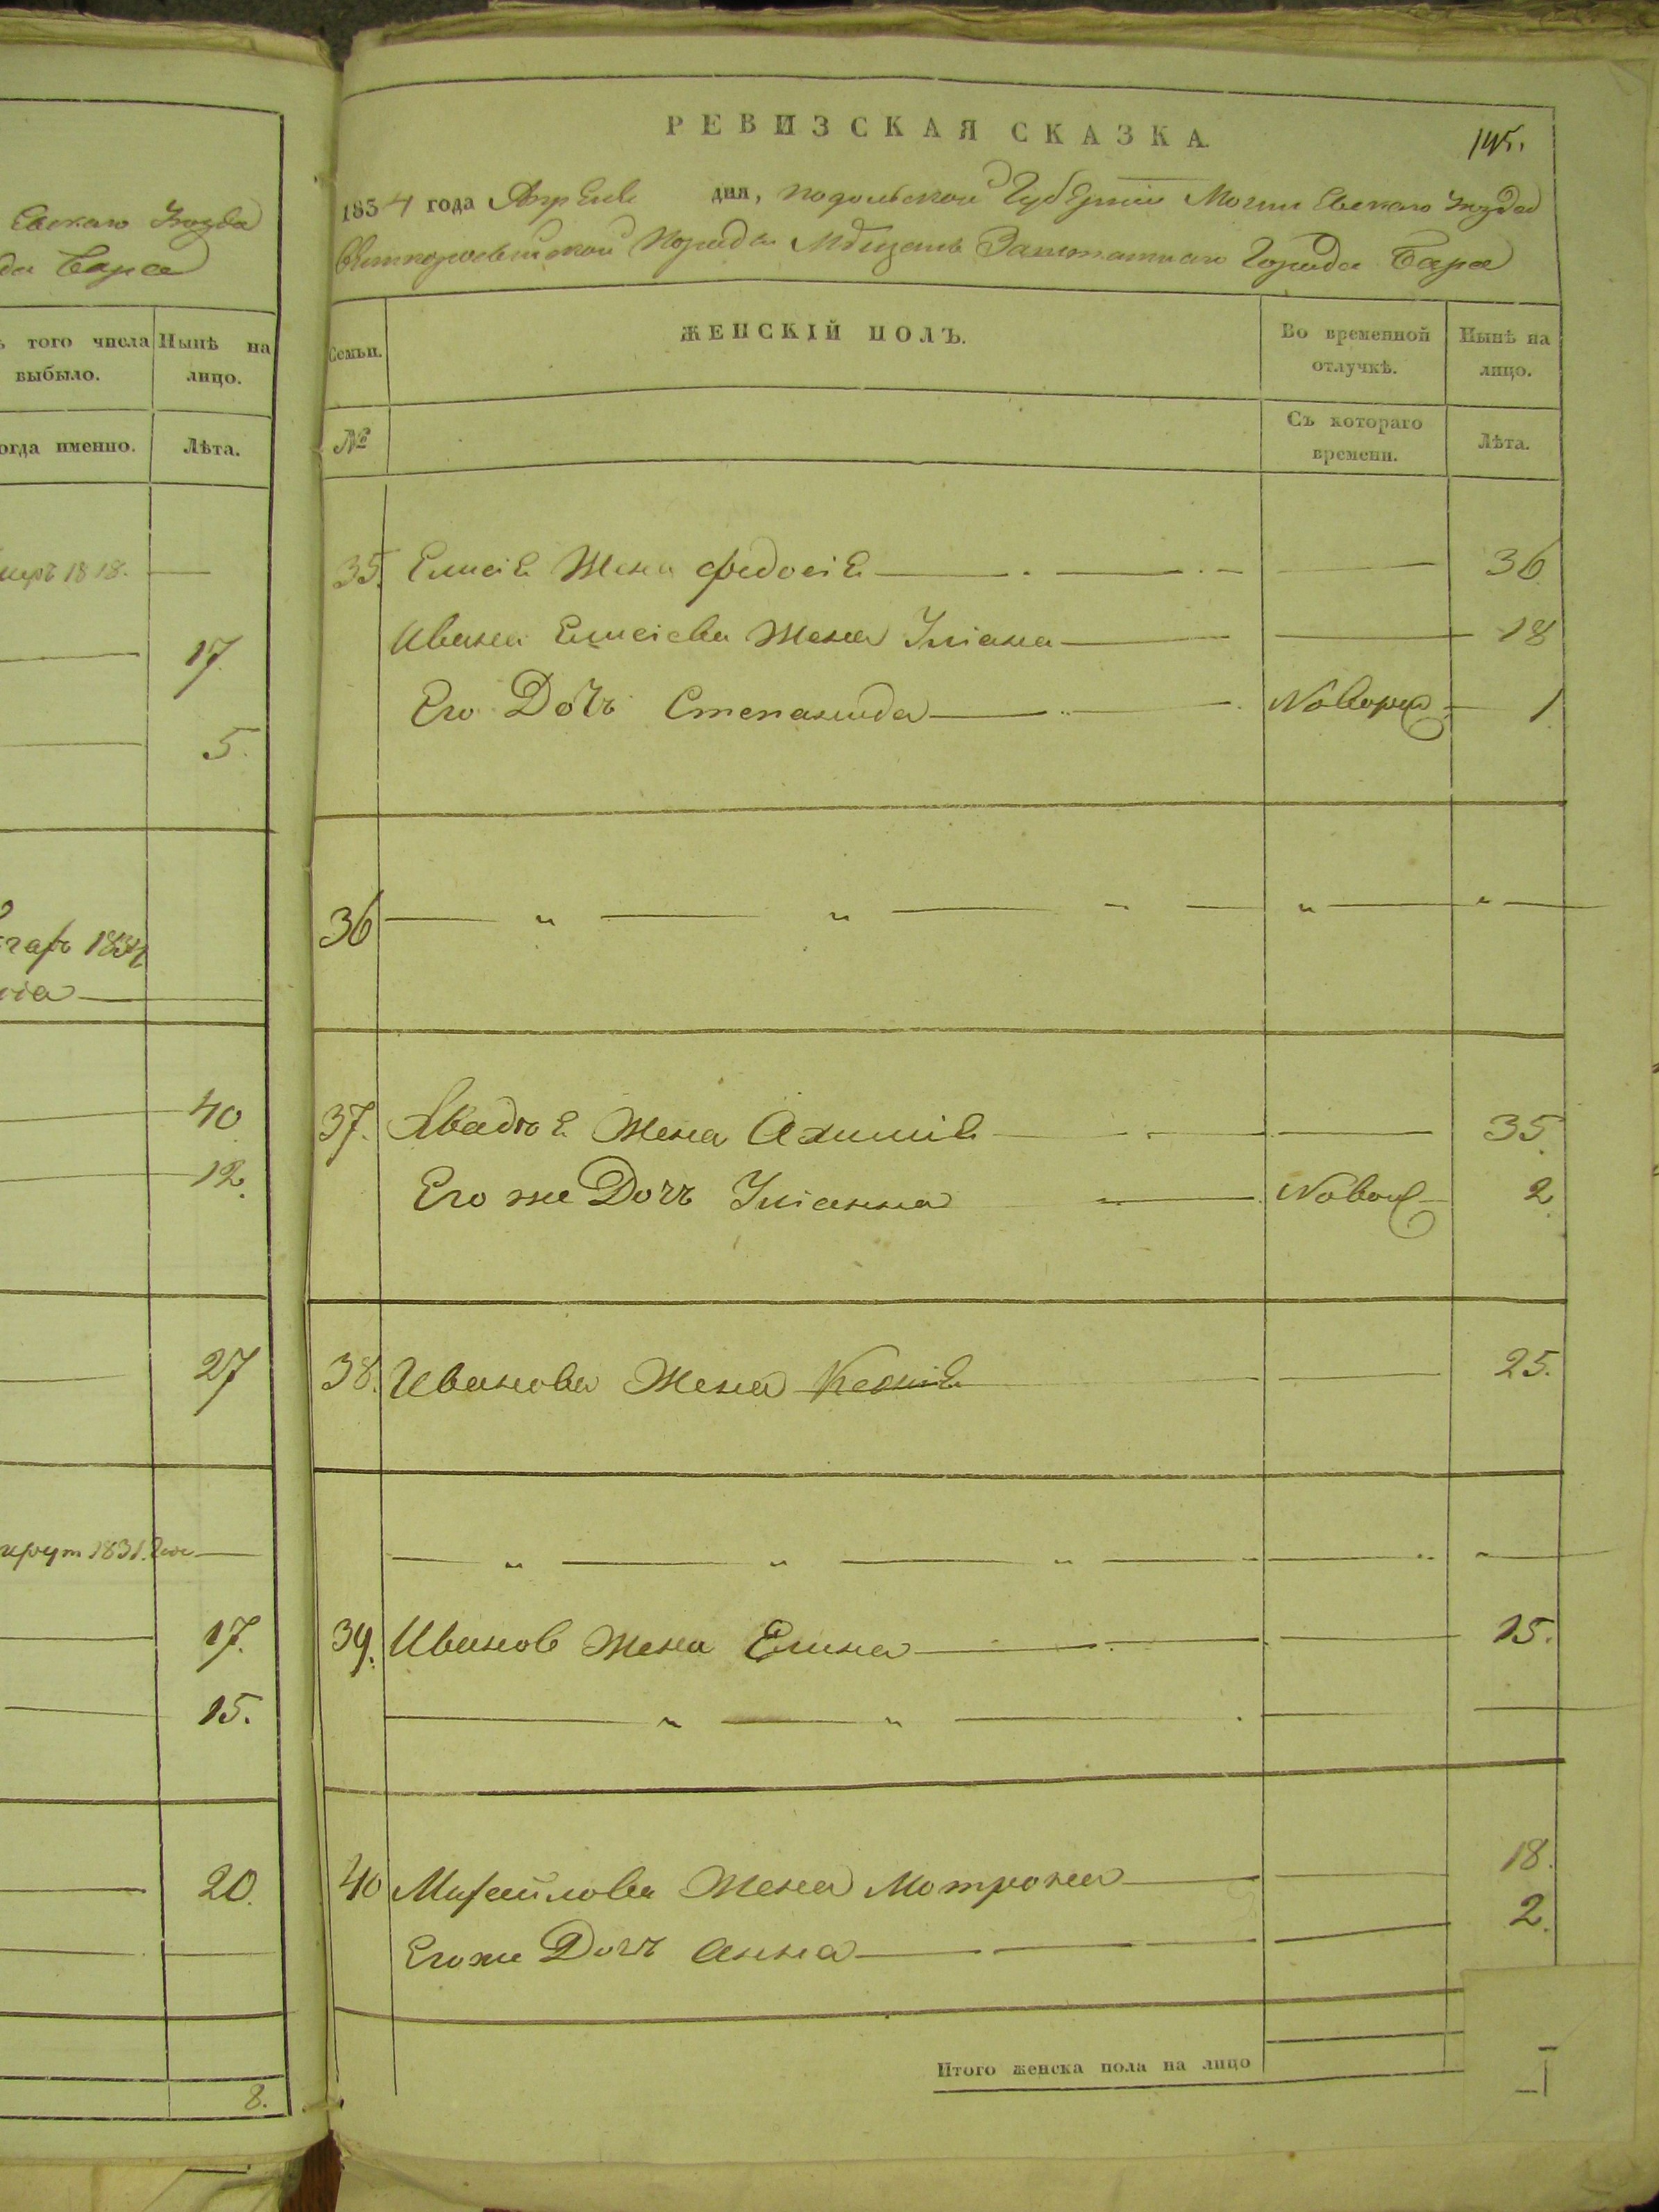 Евскаго Уѣзда
да Бара
того числа выбыло.
Нынѣ на лицо.
огда именно.
Лѣта.
1818.
17.
5.
1834
40
12.
27
1831. Года
17.
15.
20.
8.
РЕВИЗСКАЯ СКАЗКА
145.
1834 года Апреля дня, подольской Губернии Могилевскаго Уѣзда
Мѣщанъ Заштатнаго Города Бара
Семьи.
ЖЕНСКІЙ ПОЛЪ.
Во временной отлучкѣ.
Нынѣ на лицо.
№
Съ котораго времени.
Лѣта.
35. Елисіе Жена Федосіе 36
Ивана Елисіева Жена Уліана 18
Его Дочь Степанида Новорж 1
36
37. Авадюе Жена Ахиміе 35.
Его же Дочь Уліанна Новоо 2.
38. Иванова Жена 25.
39. Иванов Жена Елина 15.
40 Михайлова Жена Мотрона 18.
Егоже Дочь Анна 2.
Итого женска пола на лицо